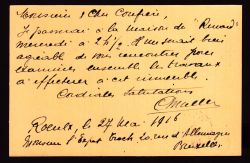 Monsieur & Cher Confrère,
Je passerai à la maison de "Renard"
mercredi à 2 h ½. Il me serait très
agréable de vous rencontrer pour
examiner ensemble les travaux
à effectuer à cet immeuble.
Cordiales Salutations
Roeulx le 24 Mai 1916
Monsieur l'Expert
Bruxelles